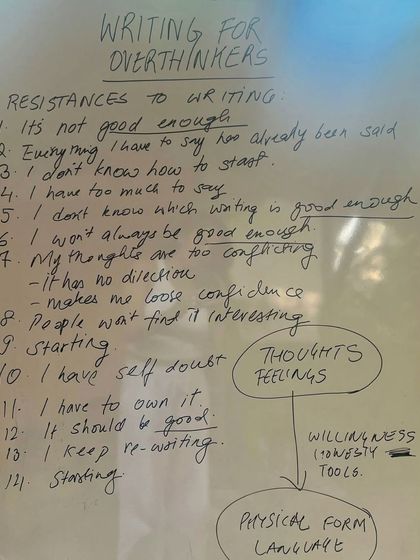 WRITING FOR
OVERTHINKERS
RESISTANCES TO WRITING:
1. It's not good enough
2. Everything I have to say has already been said
3. I don't know how to start.
4. I have too much to say
5. I don't know which writing is good enough
6. I won't always be good enough.
7. My thoughts are too conflicting
- it has no direction
- makes me loose confidence
8. People won't find it interesting
9. Starting.
10. I have self doubt
11. I have to own it.
12. It should be good.
13. I keep re-writing.
14. Starting.
THOUGHTS
FEELINGS
WILLINGNESS
HONESTY
TOOLS.
PHYSICAL FORM
LANGUAGE